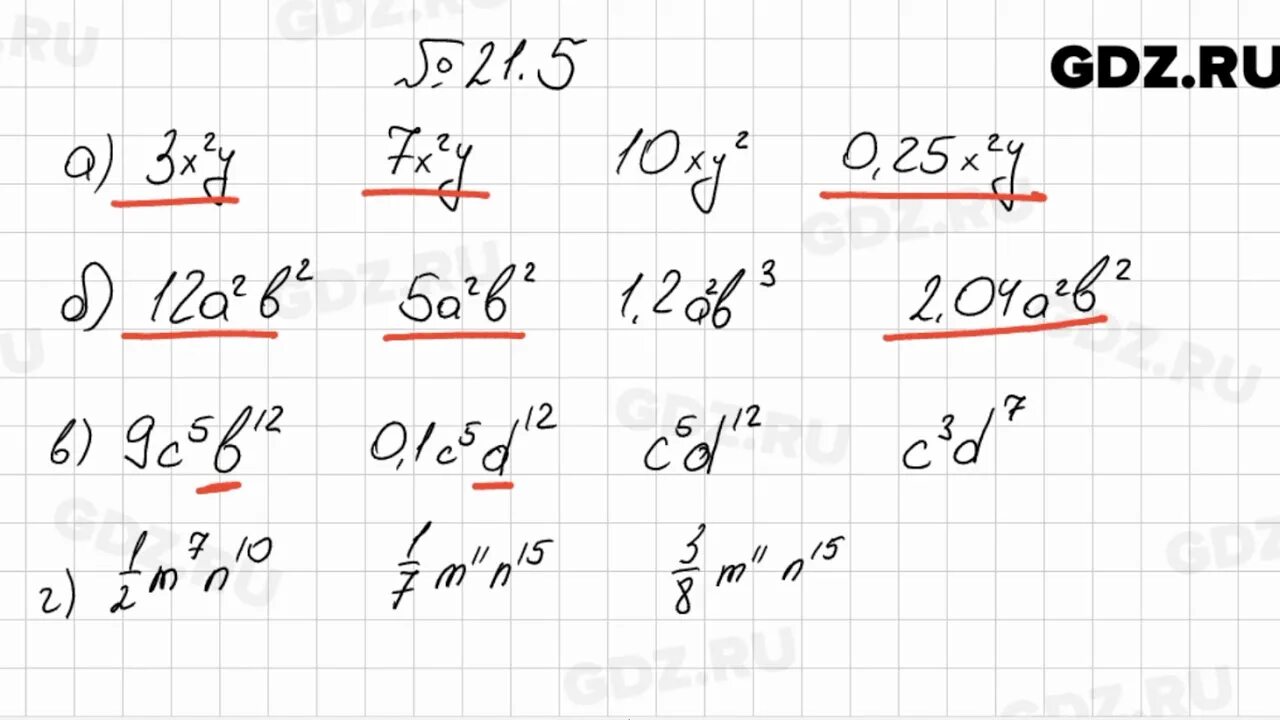 № 21.5
GDZ.RU
а) 3x²y 7x²y 10xy² 0,25x²y
б) 12a²b² 5a²b² 1,2a²b³ 2,04a²b²
в) 9c⁵b¹² 0,1c⁵d¹² c⁵d¹² c³d⁷
г) 1/2 m⁷n¹⁰ 1/7 m¹¹n¹⁵ 3/8 m¹¹n¹⁵